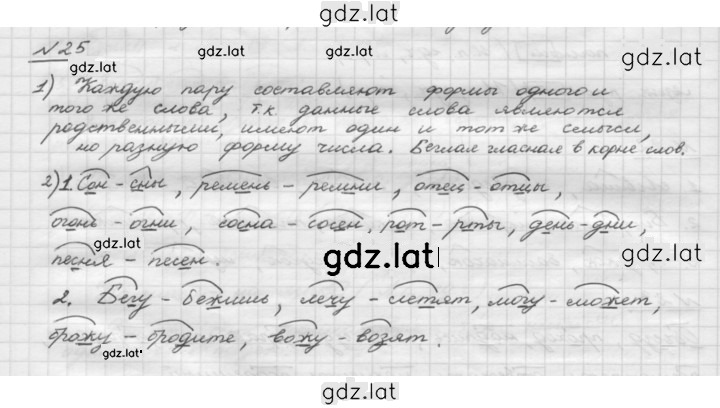 gdz.lat
№25
gdz.lat gdz.lat
1) Каждую пару составляют формы одного и
того же слова, т.к. данные слова являются
родственными, имеют один и тот же смысл,
но разную форму числа. Беглая гласная в корне слов.
2) 1. Сон - сны, ремень - ремни, отец - отцы,
огонь - огни, сосна - сосен, рот - рты, день - дни,
gdz.lat gdz.lat gdz.lat
песня - песен.
2. Бегу - бежишь, лечу - летят, могу - может,
брожу - бродите, вожу - возят.
gdz.lat gdz.lat
gdz.lat